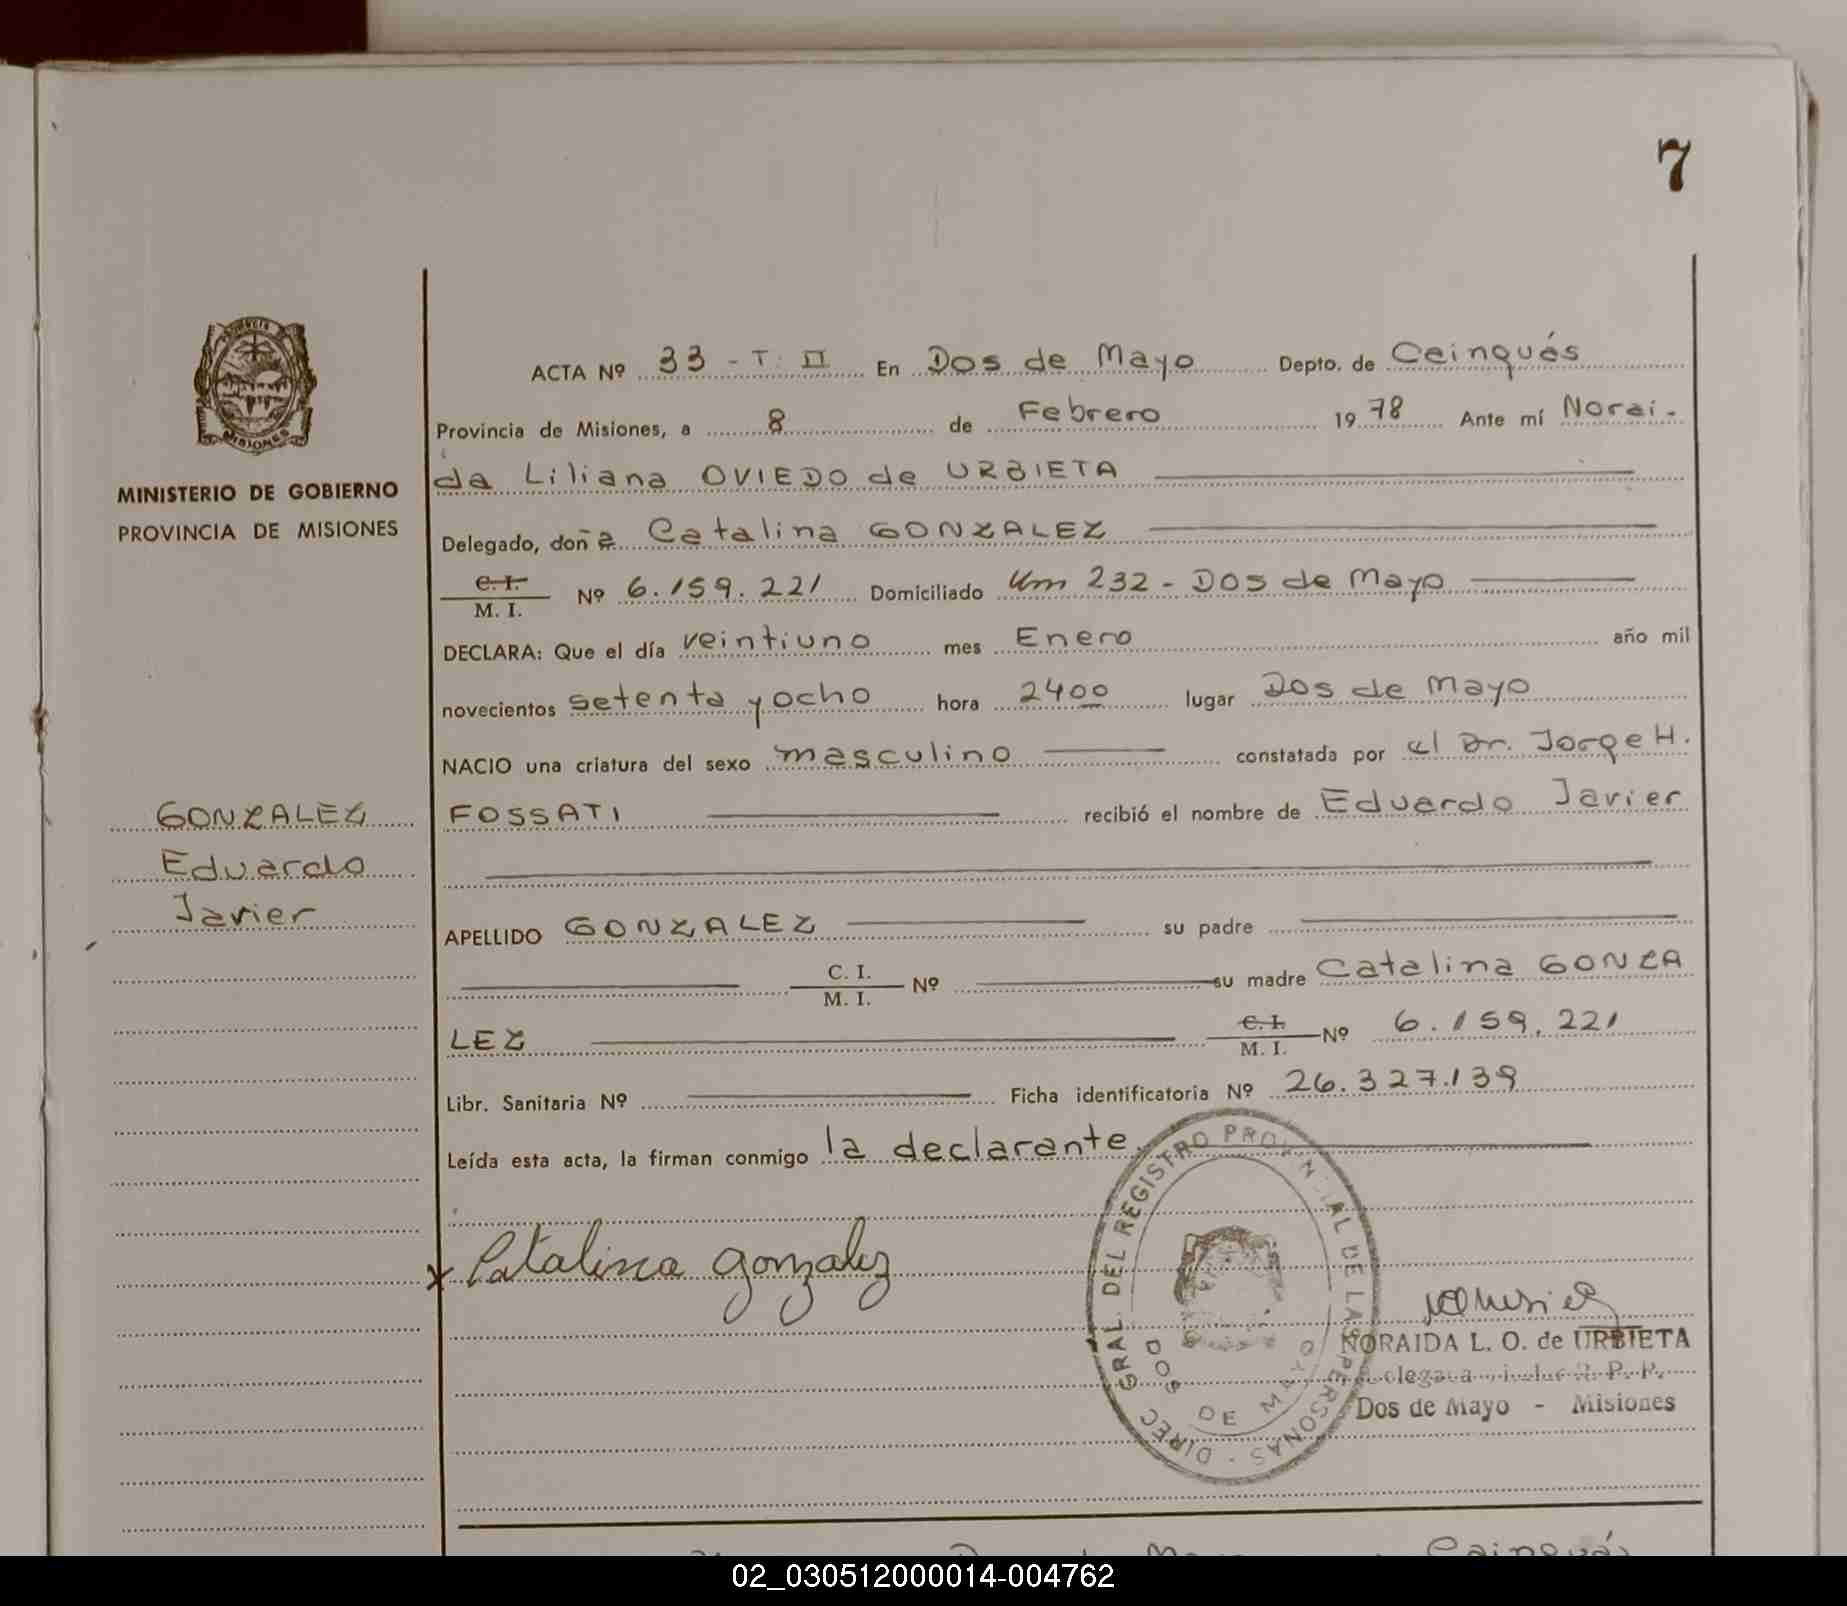 7
ACTA Nº 33 - T. II En Dos de Mayo Depto. de Cainguás
Provincia de Misiones, a 8 de Febrero 1978 Ante mí Norai-
da Liliana OVIEDO de URBIETA
Delegado, doña Catalina GONZALEZ
C. I.
M. I. Nº 6.159.221 Domiciliado Km 232 - Dos de Mayo
DECLARA: Que el día veintiuno mes Enero año mil
novecientos setenta y ocho hora 2400 lugar Dos de Mayo
NACIO una criatura del sexo masculino constatada por el Dr. Jorge H.
FOSSATI recibió el nombre de Eduardo Javier
APELLIDO GONZALEZ su padre
C. I.
M. I. Nº su madre Catalina GONZA
LEZ C. I.
M. I. Nº 6.159.221
Libr. Sanitaria Nº Ficha identificatoria Nº 26.327.139
Leída esta acta, la firman conmigo la declarante.
x Catalina gonzalez
NORAIDA L. O. de URBIETA
Delegada Titular R. P. P.
Dos de Mayo - Misiones
DIREC. GRAL. DEL REGISTRO PROVINCIAL DE LAS PERSONAS
DOS DE MAYO
PROVINCIA DE
MISIONES
MINISTERIO DE GOBIERNO
PROVINCIA DE MISIONES
GONZALEZ
Eduardo
Javier
Cainguás
02_030512000014-004762